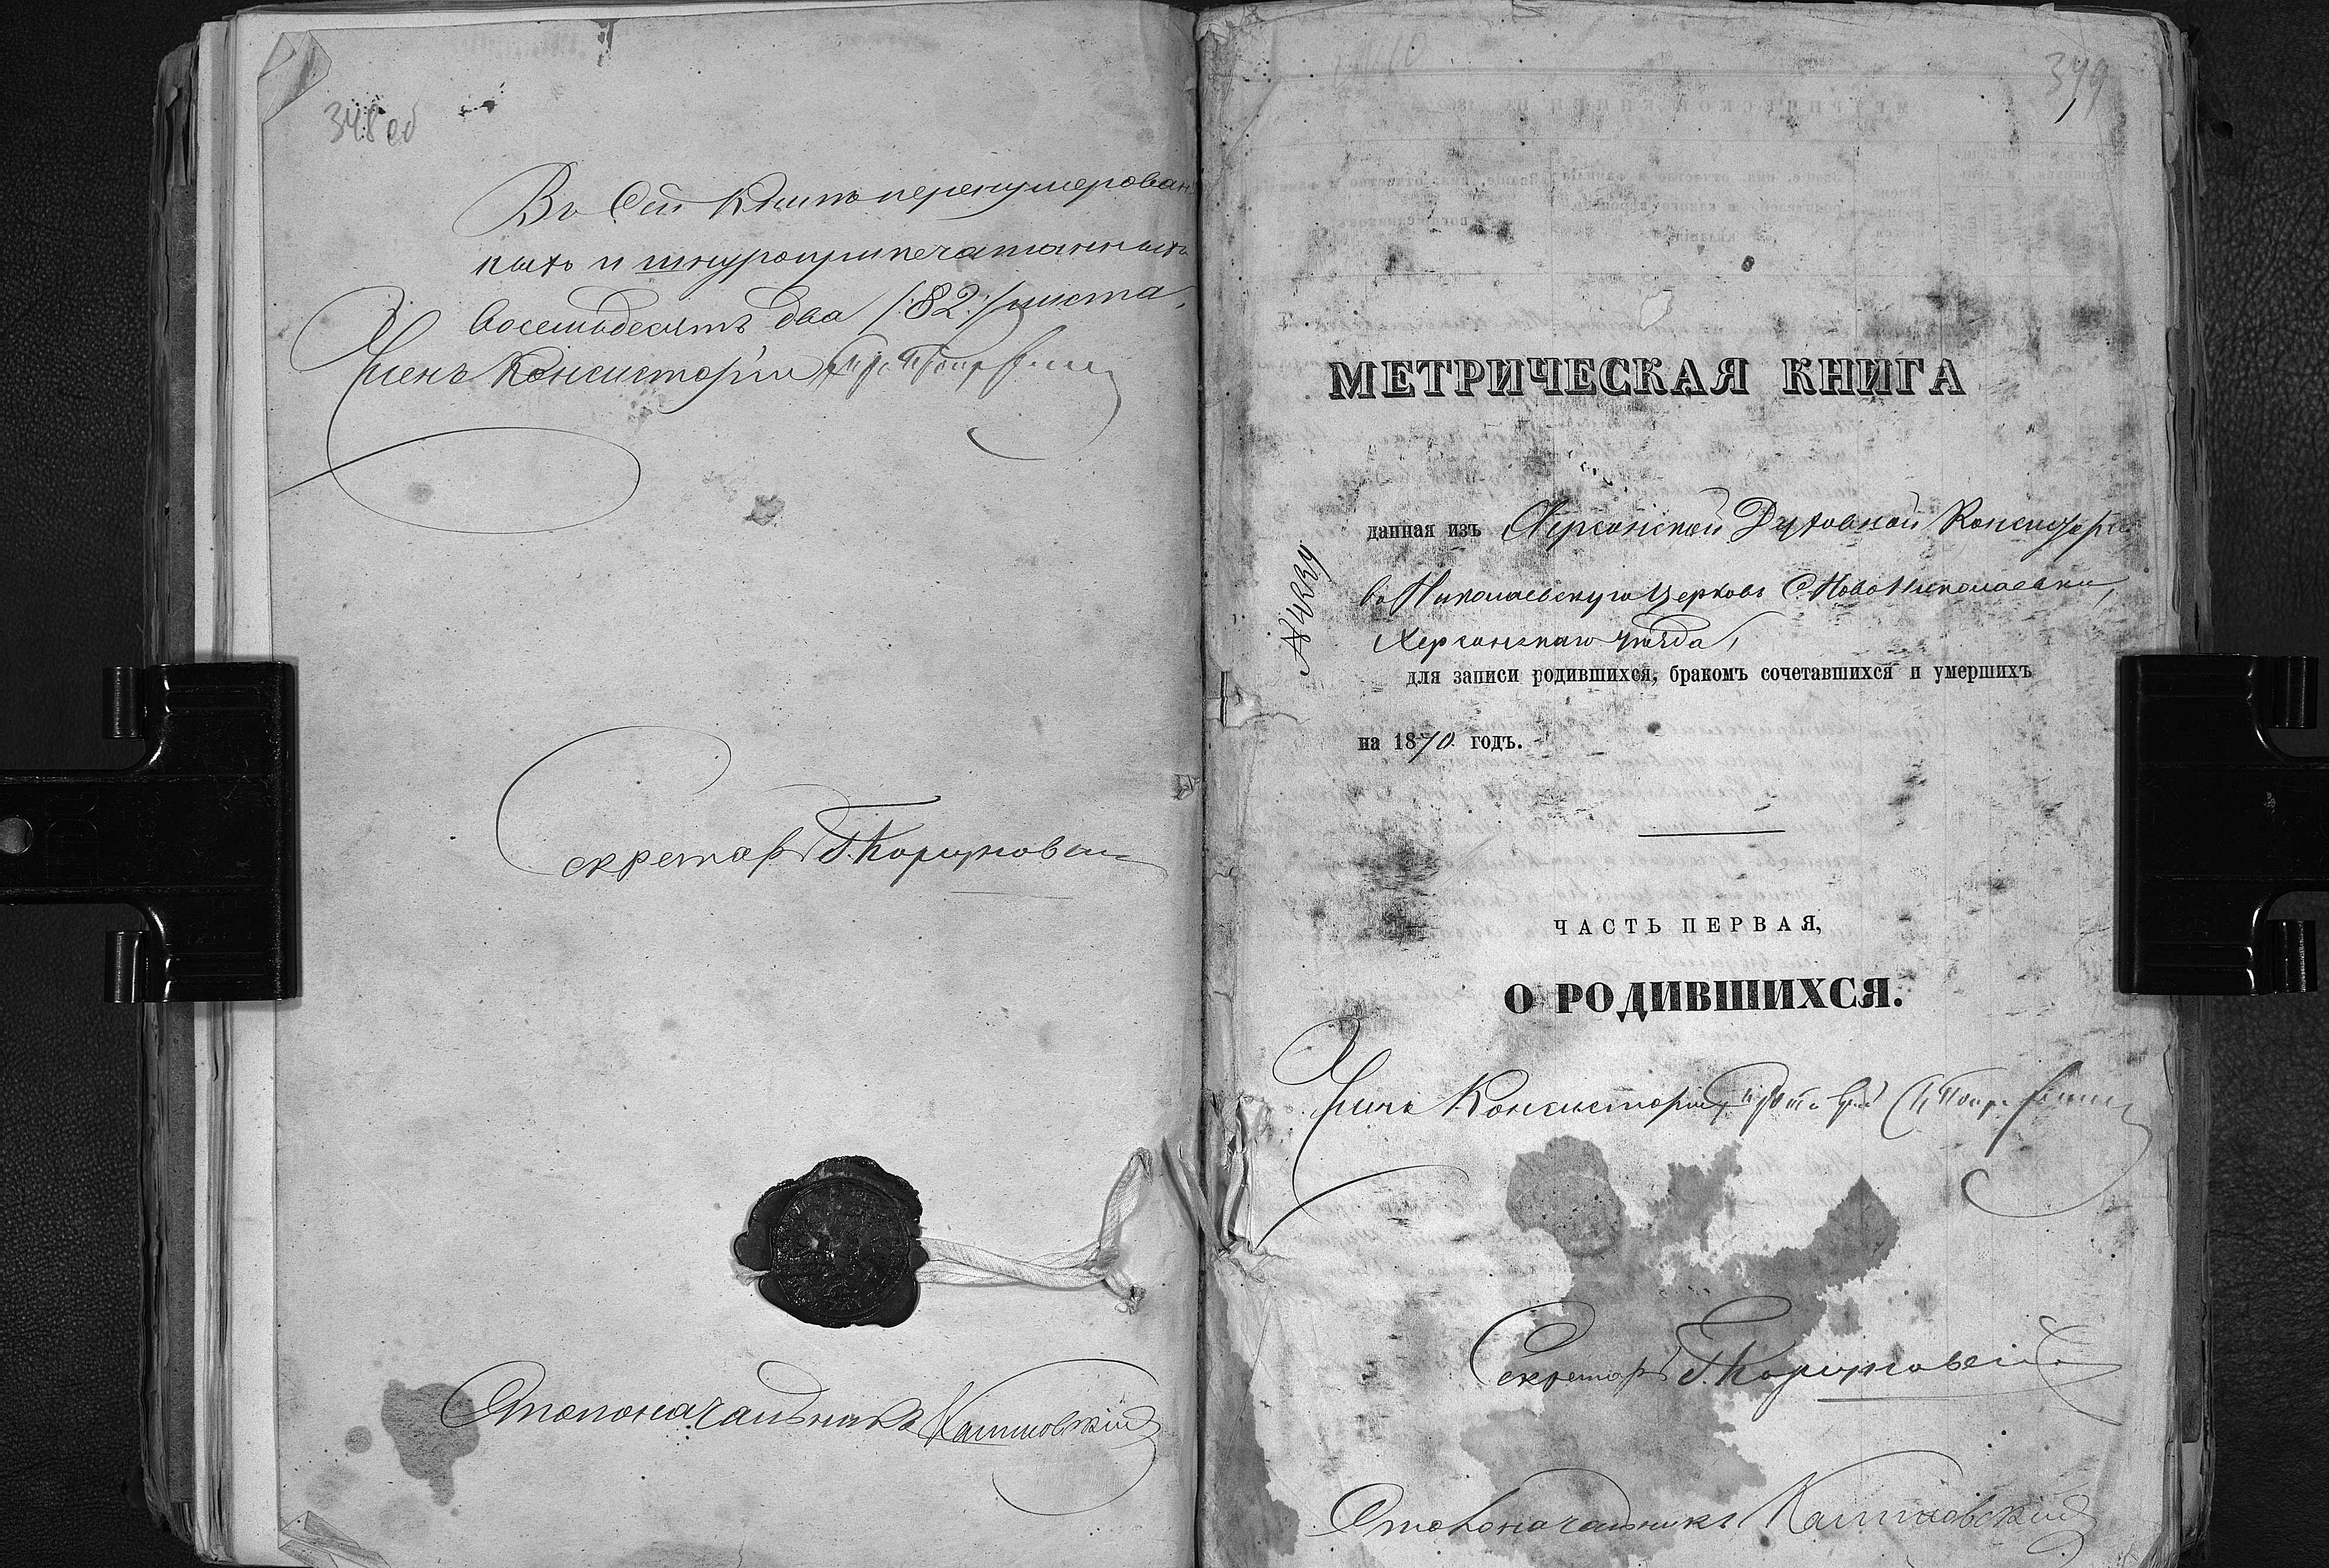 348 об
Въ сей книгѣ перенумерован
ныхъ и шнуроприпечатанныхъ
восемьдесятъ два /:82:/ листа.
Членъ Консисторіи
Секретарь Г.
Столоначальникъ
349
МЕТРИЧЕСКАЯ КНИГА
данная изъ Херсонской Духовной Консисторіи
№ 4339
въ Николаевскую церковь С. Новониколаевки,
Херсонскаго уѣзда,
для записи родившихся, бракомъ сочетавшихся и умершихъ
на 1870 годъ.
ЧАСТЬ ПЕРВАЯ,
О РОДИВШИХСЯ.
Членъ Консисторіи
Секретарь Г.
Столоначальникъ